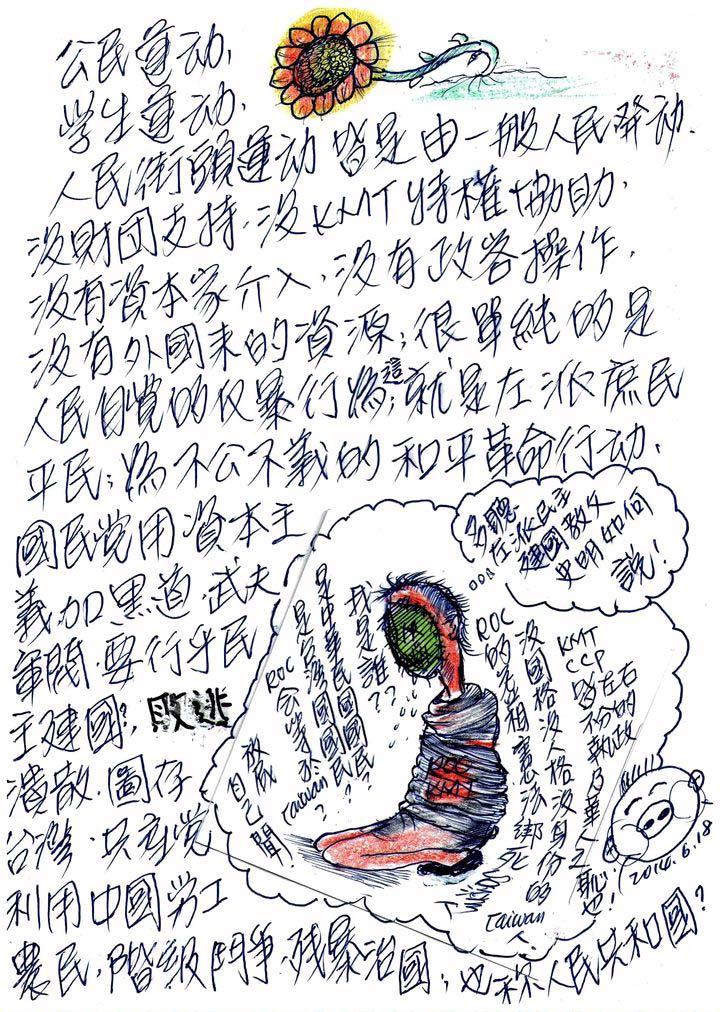 公民運动,
學生運动,
人民街頭運动皆是由一般人民發动.
沒財団支持.沒KMT特權協助,
沒有資本家介入,沒有政客操作,
沒有外國来的資源;很單純的是
人民自覺的仅暴行為;這就是左派庶民
平民;為不公不義的和平革命行动,
國民党用資本主
義.加黑道.武夫
軍閥.要行乎民
主建國?敗逃
潰散.圖存
台灣.共產党
利用中國勞工
農民,階級鬥争.残暴治國;也称人民共和國?
多聽
左派民主
建國教父
史明如何
說!
KMT
CCP
皆左右
不份的
執政
乃華人之
恥也!
沒國格沒人格沒身份的
Taiwan
人
ROC
的差相憲法綁死
我是誰??
是中華民國國民?
是台灣國國民?
ROC
会等於
Taiwan?
放屁
自己聞!
ROC
KMT
2014.6.18